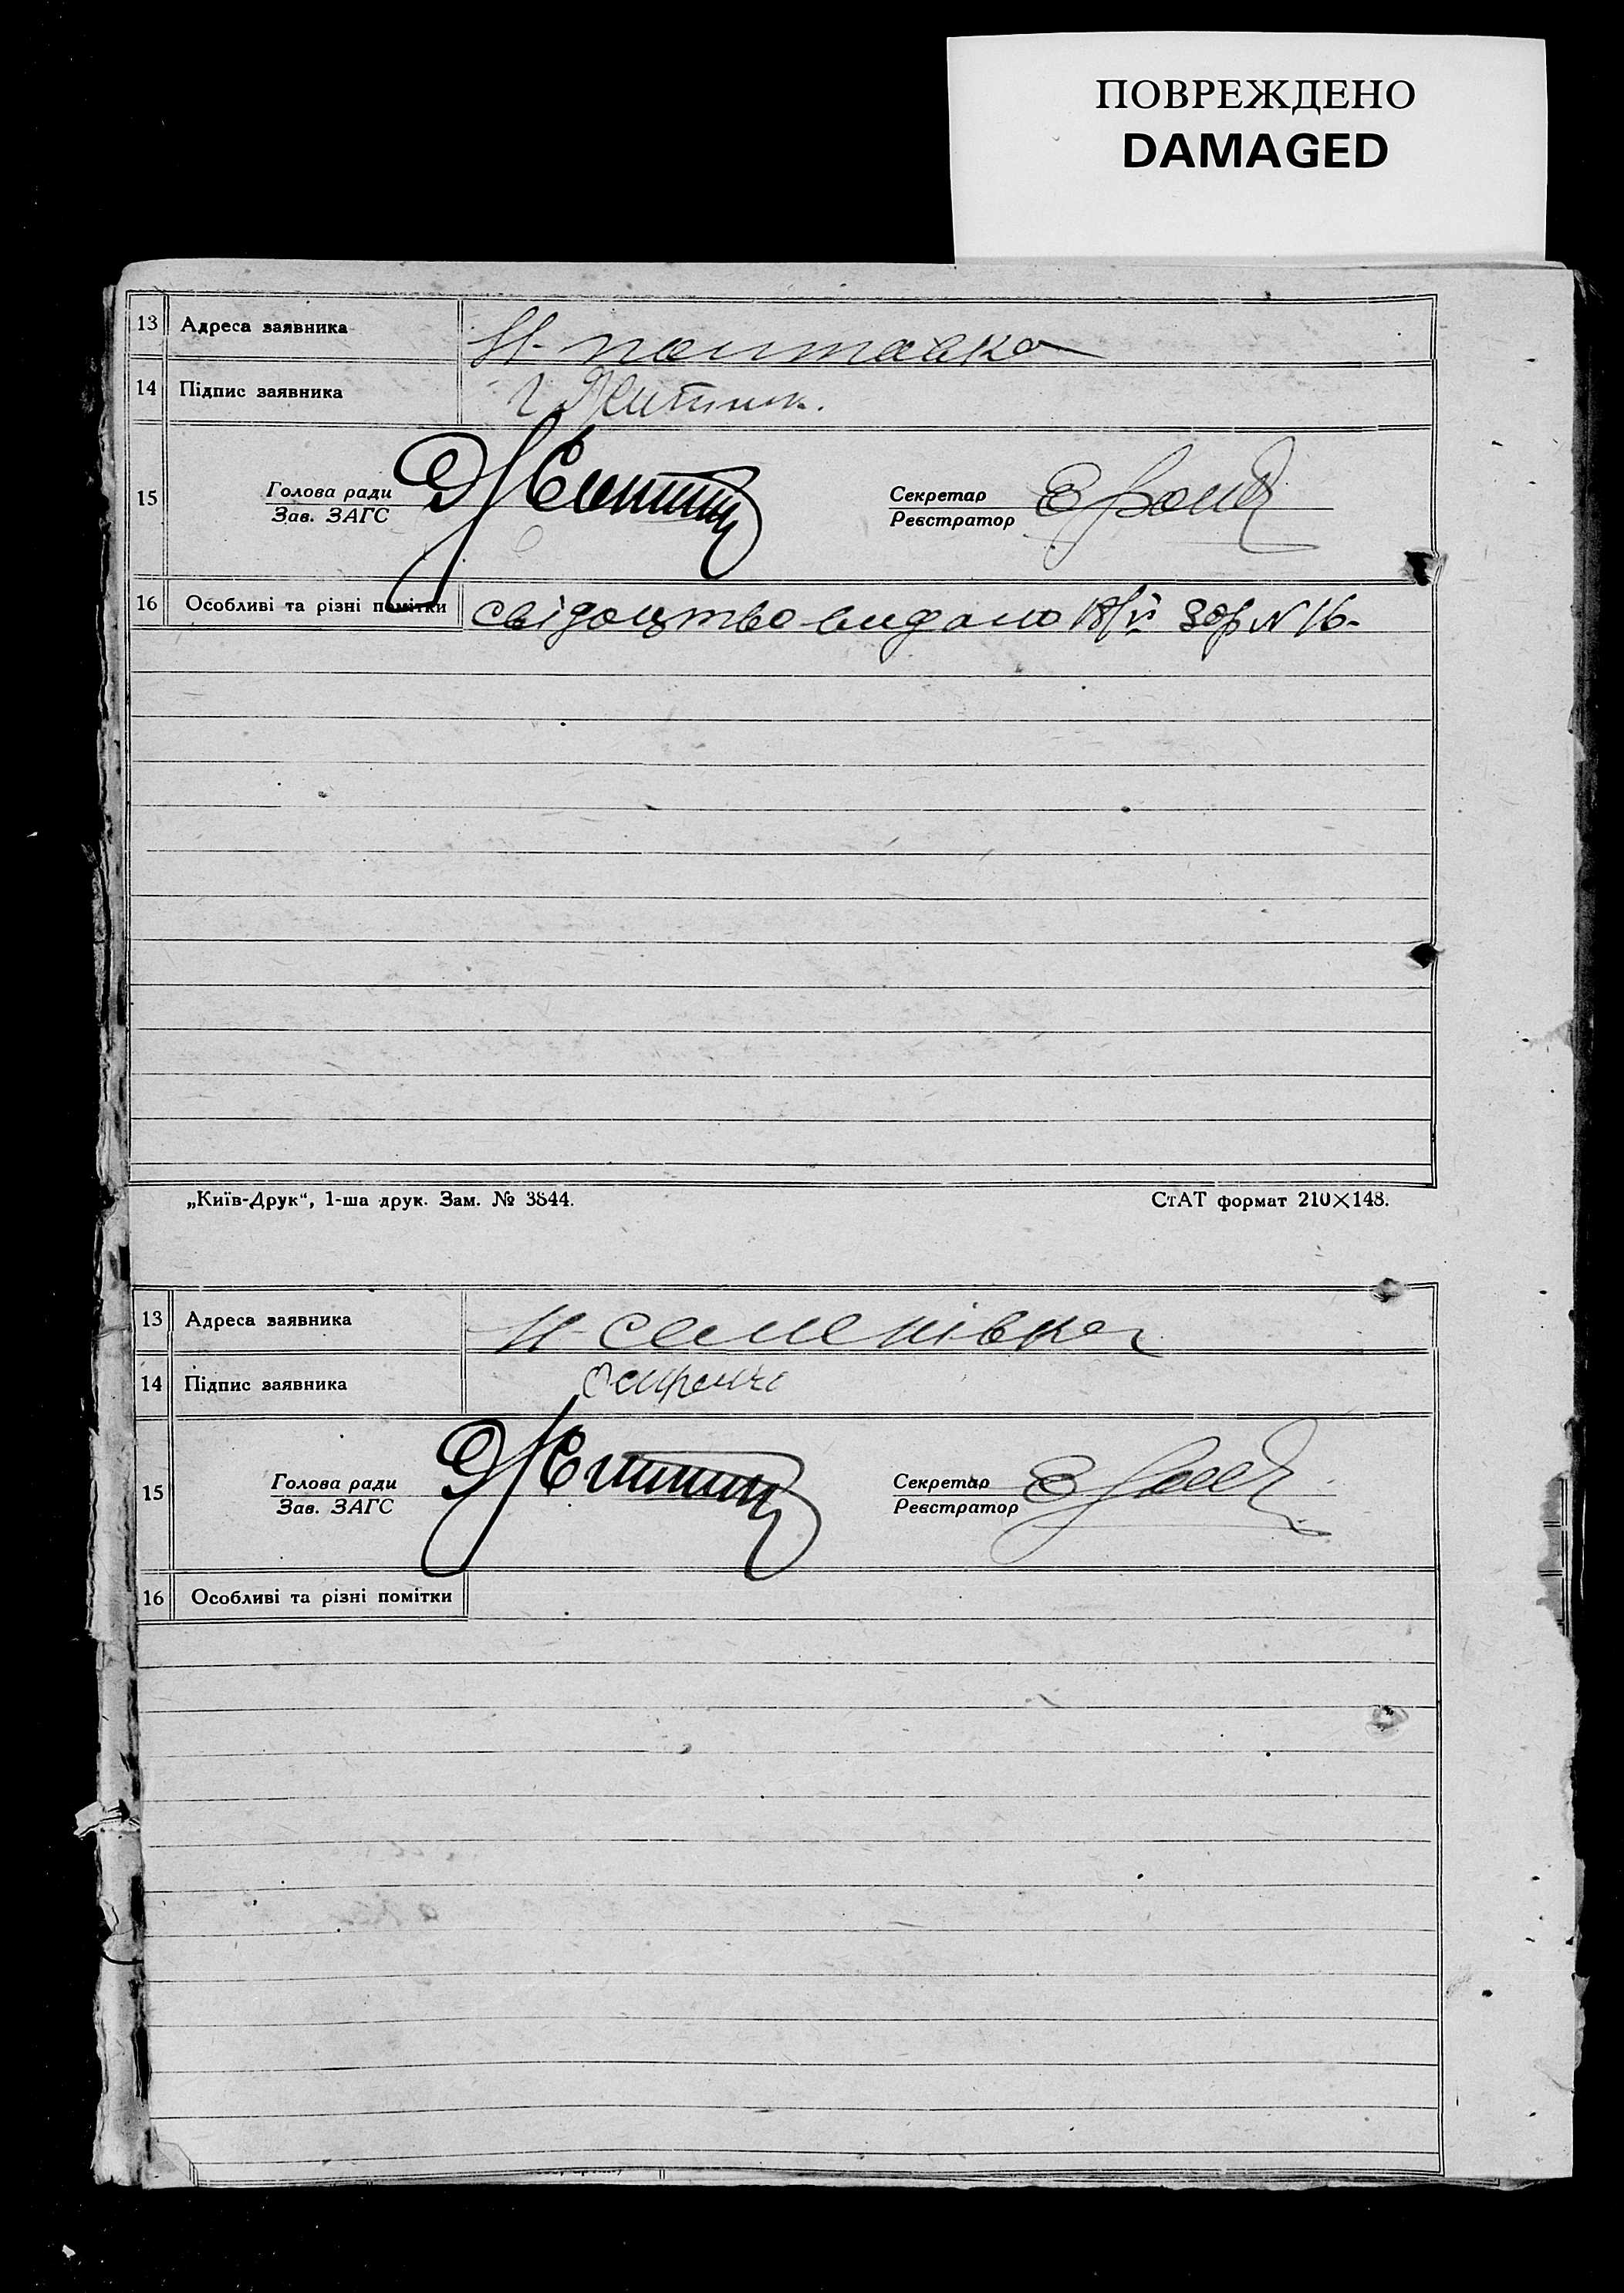 ПОВРЕЖДЕНО
DAMAGED
13 Адреса заявника Н-полтавка
14 Підпис заявника
15 Голова ради Секретар
Зав. ЗАГС Реєстратор
16 Особливі та різні помітки свідоцтво видано 18/V 30р N 16-
„Київ-Друк“, 1-ша друк. Зам. № 3844. СтАТ формат 210×148.
13 Адреса заявника Н-семенівка
14 Підпис заявника
15 Голова ради Секретар
Зав. ЗАГС Реєстратор
16 Особливі та різні помітки